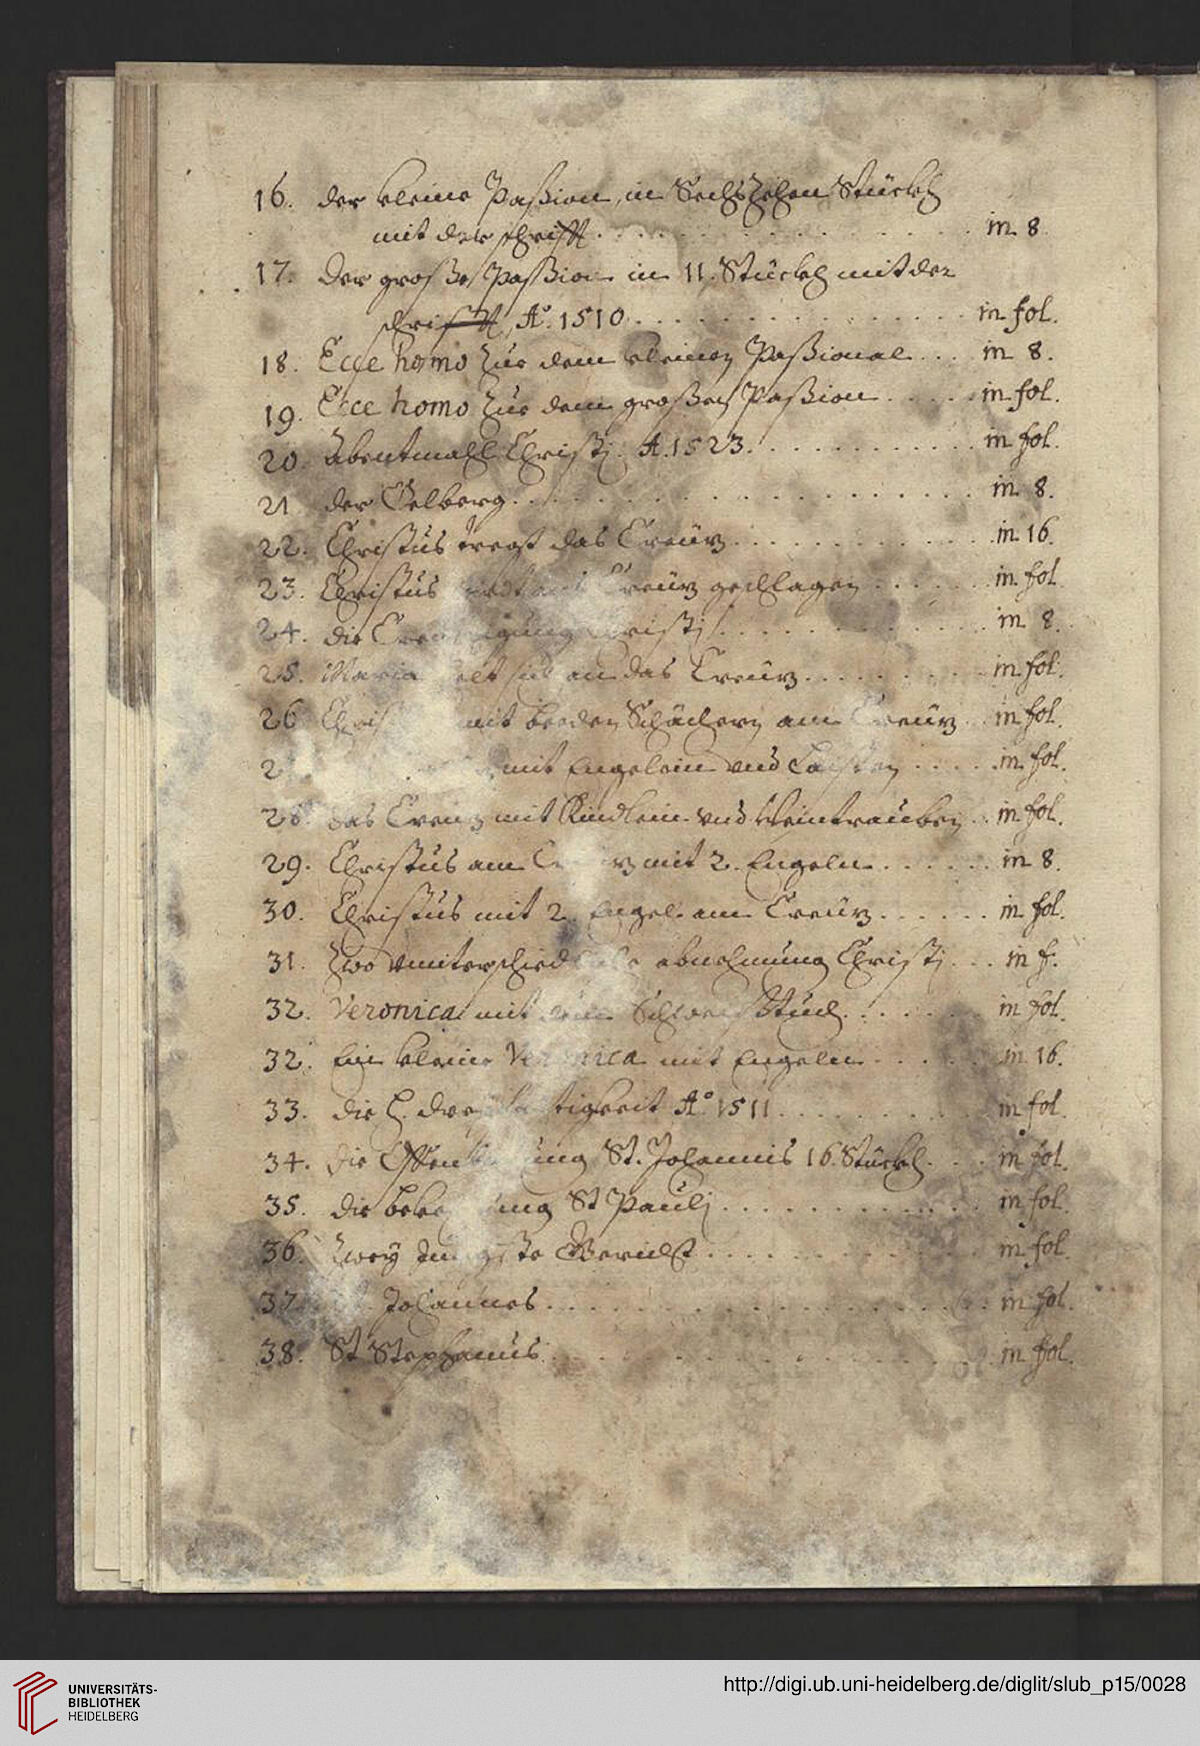 16. der kleine Paßion, in Sechszehen Stückh
mit der schrifft . . . . . . in 8
17. Der große Paßion in 11. Stückh mit der
schrifft, Aº. 1510 . . . . . . in fol.
18. Ecce homo zue dem kleinen Paßional . . . in 8.
19. Ecce homo zue dem großen Paßion . . . . . in fol.
20. Abentmahl Christj. A. 1523. . . . . . in fol.
21 der Oelberg . . . . . . in 8.
22. Christus tregt das Creütz . . . . . . in 16.
23. Christus Creütz geschlagen . . . . . . in fol
24. die Christj . . . . . . in 8.
25. Maria an das Creütz . . . . . . in fol.
26 mit beeden Schächern am Creütz . . in fol.
mit Engelein vnd . . . . . in fol.
28. das Creutz mit Kindlein vnd Weintrauben . . in fol.
29. Christus am mit 2. Engeln . . . . . . in 8.
30. Christus mit 2. Engel am Creütz . . . . . . in fol.
31. Zwo vnnterschiedliche abnehmung Christj . . . in f.
32. Veronica mit dem Schweißtuch . . . . . . in fol.
32. Ein kleine Veronica mit Engeln . . . . . in 16.
33. die H. Aº 1511 . . . . . . in fol.
34. die St. Johannis 16. Stückh . . . in fol.
35. die St Paulj . . . . . . in fol.
36. Zwey Gericht . . . . . . in fol.
37. Johannes . . . . . . in fol.
38. St Stephanus . . . . . . in fol.
UNIVERSITÄTS-
BIBLIOTHEK
HEIDELBERG
http://digi.ub.uni-heidelberg.de/diglit/slub_p15/0028